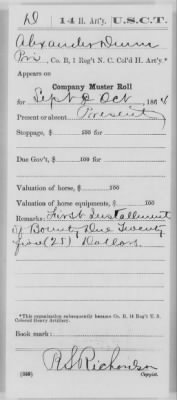 D | 14 H. Art'y. | U.S.C.T.
Alexander Dunn
Pvt, Co. B, 1 Reg't N. C. Col'd H. Art'y.*
Appears on
Company Muster Roll
for Sept & Oct, 1864
Present or absent Present
Stoppage, $ 100 for
Due Gov't, $ 100 for
Valuation of horse, $ 100
Valuation of horse equipments, $ 100
Remarks: First Installment
of Bounty Due Twenty
five (25) Dollars.
*This organization subsequently became Co. B, 14 Reg't U. S.
Colored Heavy Artillery.
Book mark:
R S Richardson
(358) Copyist.